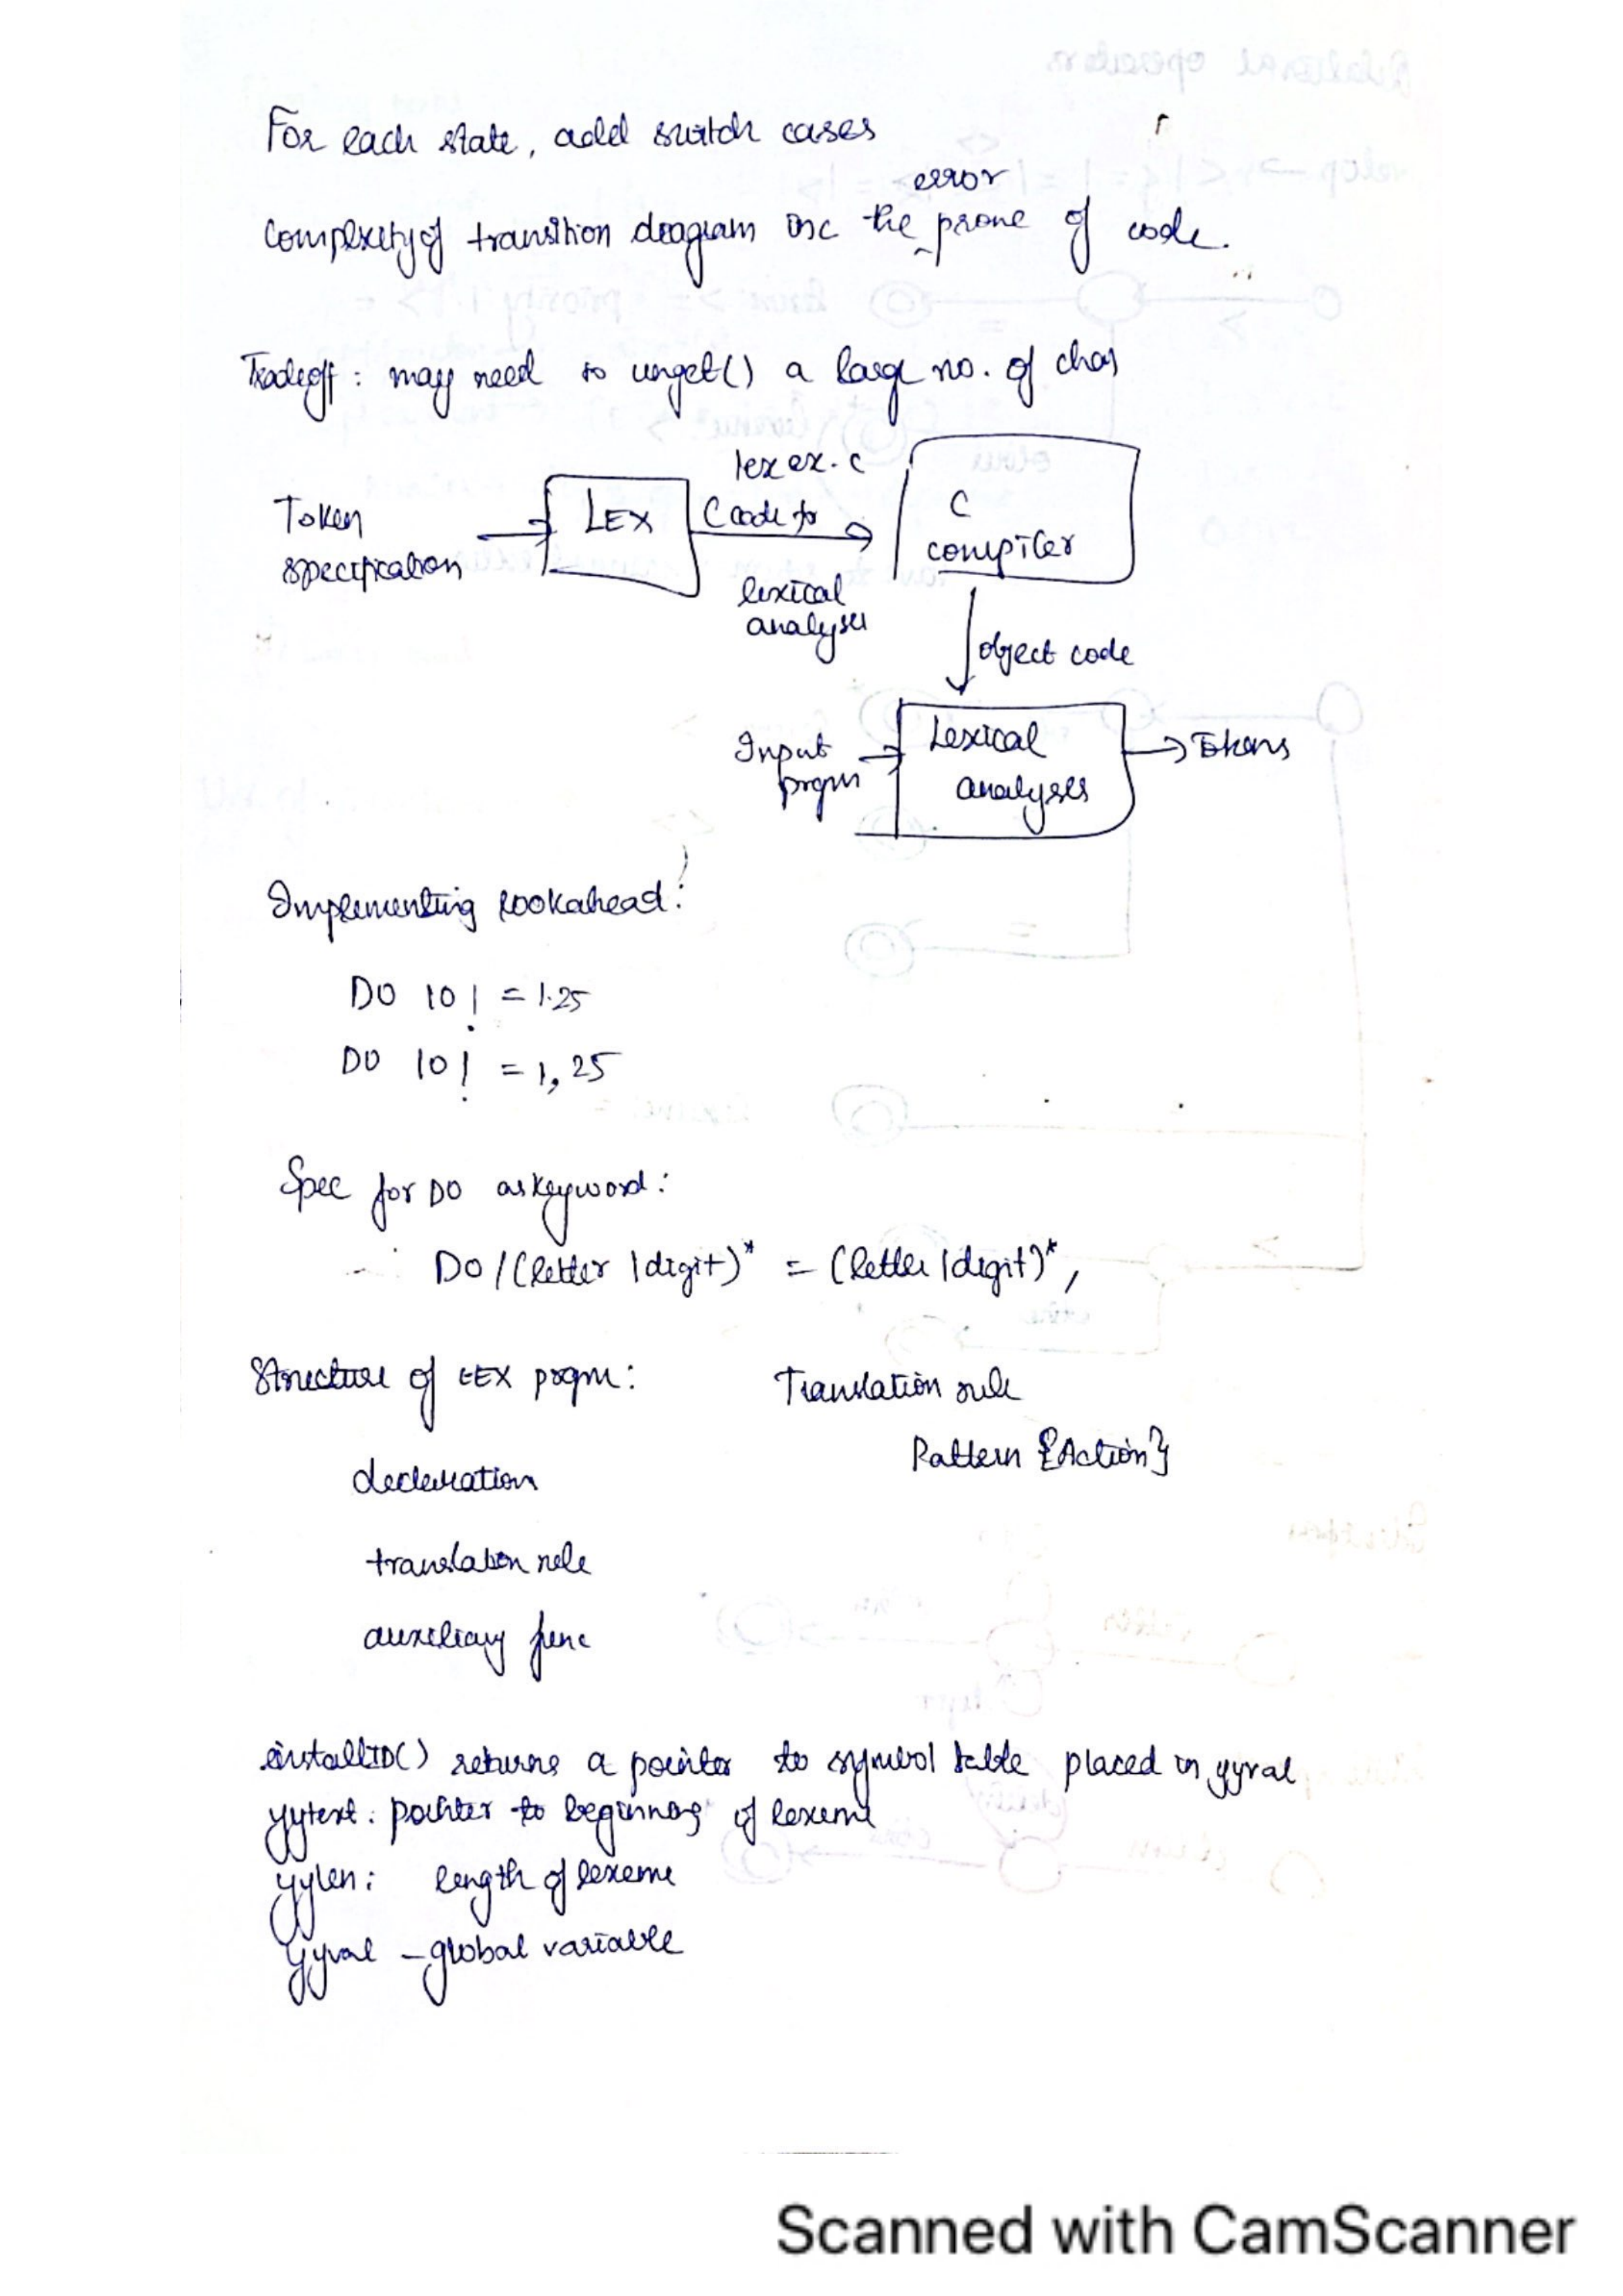 For each state, add switch cases
error
Complexity of transition diagram inc the prone of code.
Tradeoff : may need to unget() a large no. of char
lex ex. c
Token
specification
LEX
C code for
lexical
analyser
C
compiler
object code
Input
prgm
Lexical
analyser
Tokens
Implementing lookahead:
DO 10 I = 1.25
DO 10 I = 1, 25
Spec for DO as keyword :
DO / (letter | digit)* = (letter | digit)* ,
Structure of LEX prgm :
Translation rule
Pattern {Action}
decleration
translation rule
auxiliary func
installID() returns a pointer to symbol table placed in yyval
yytext : pointer to beginning of lexeme
yylen : length of lexeme
yyval - global variable
Scanned with CamScanner